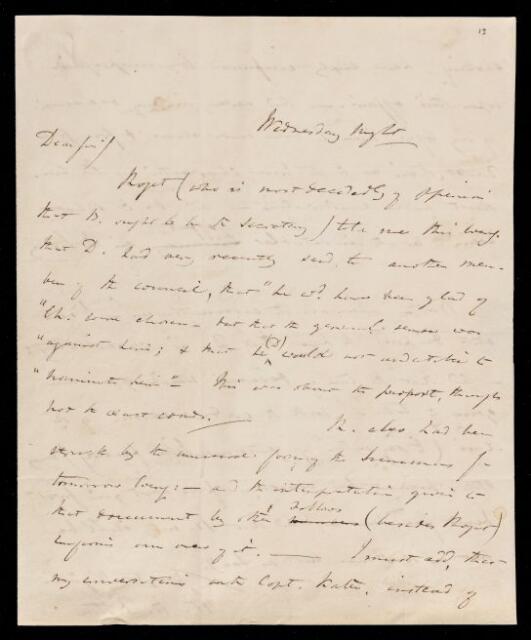 12
Wednesday Night
Dear Sir/
Roget (who is most decidedly of opinion
that B. ought to be the Secretary) tells me this Eveng.
that D. had very recently said to another mem-
ber of the council, that "he wd. have been glad if
"Ch. were chosen - but that the general sense was
"against him; & that he (D) would not undertake to
"nominate him" - This was about the purport, though
not the exact words. —
R. also had been
struck by the unusual form of the Summons for
tomorrow Eveng: - and the interpretation given to
that document by other Fellows (besides Roget)
my own view of it. — I must add, that
my conversations with Capt. Kater, instead of